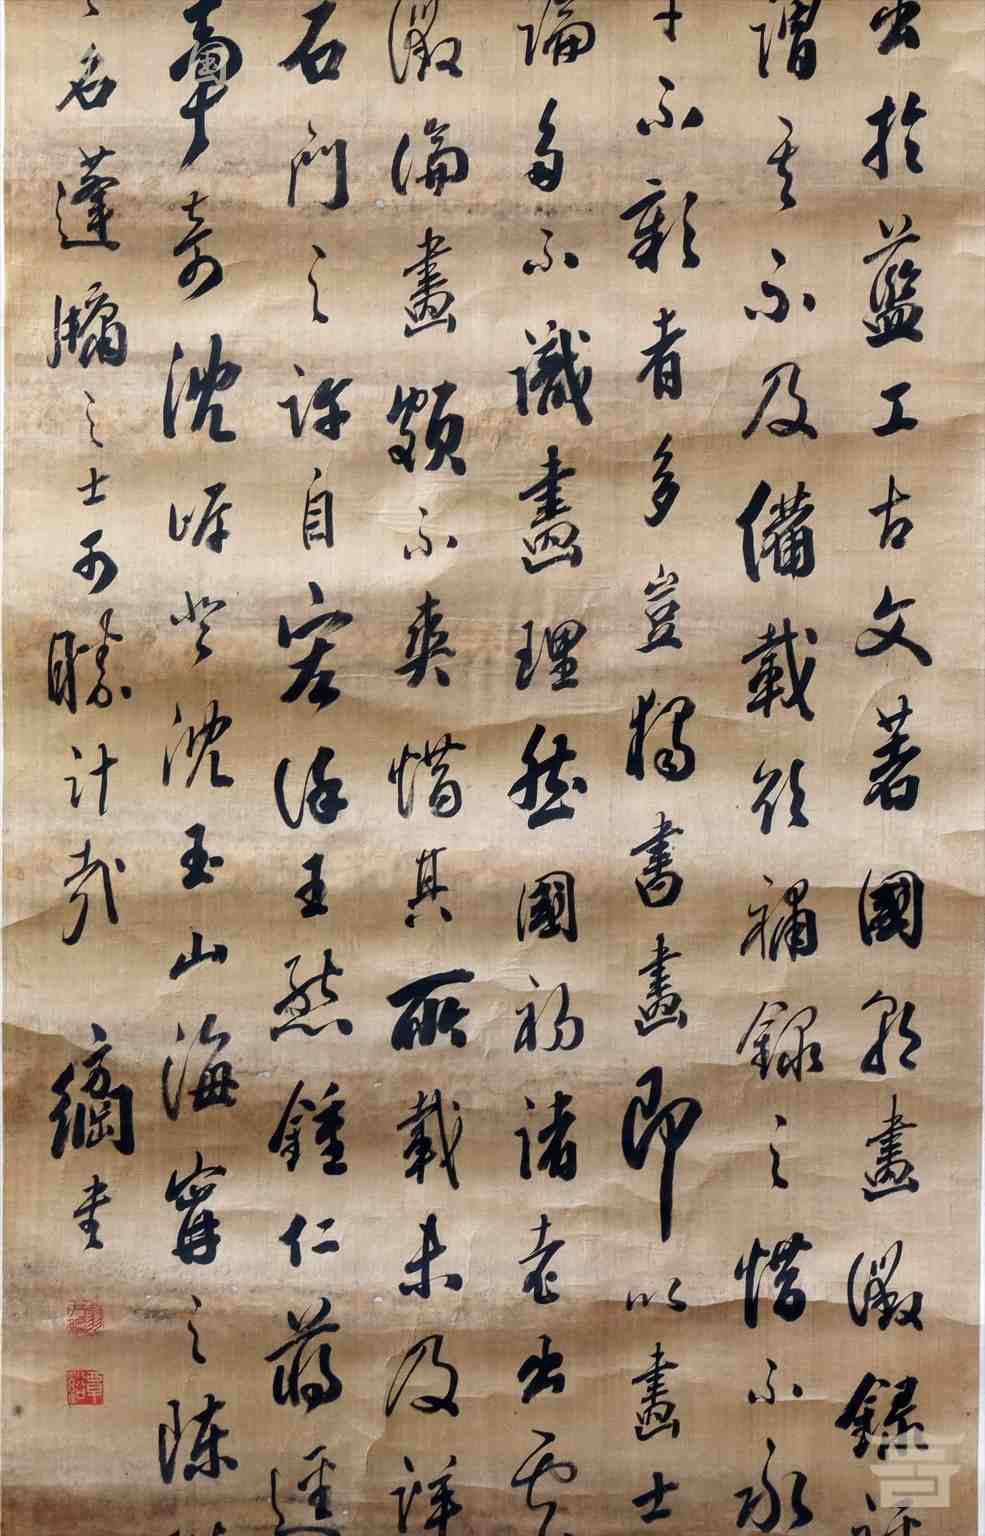 出於藍工古文著國朝畫徵錄
謂其不及備載欲補錄之惜不永
不彰者多豈獨書畫即以畫士
論多不識畫理然國初諸老出
徵論畫頗不爽惜其所載未及詳
石門之許自宏徐王熊鍾仁蔣
奇沈 沈玉山海寧之陳
名蓬牖之士可勝計哉 方綱書